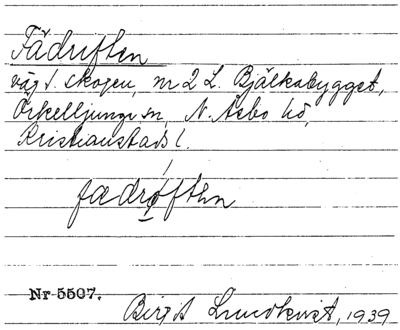 Fädriften
väg t. skogen, nr 2 L. Bjälkabygget,
Örkelljunga sn, N. Åsbo hd,
Kristianstads l.
fædrǫ́ften
Nr 5507.
Birgit Lundkvist, 1939